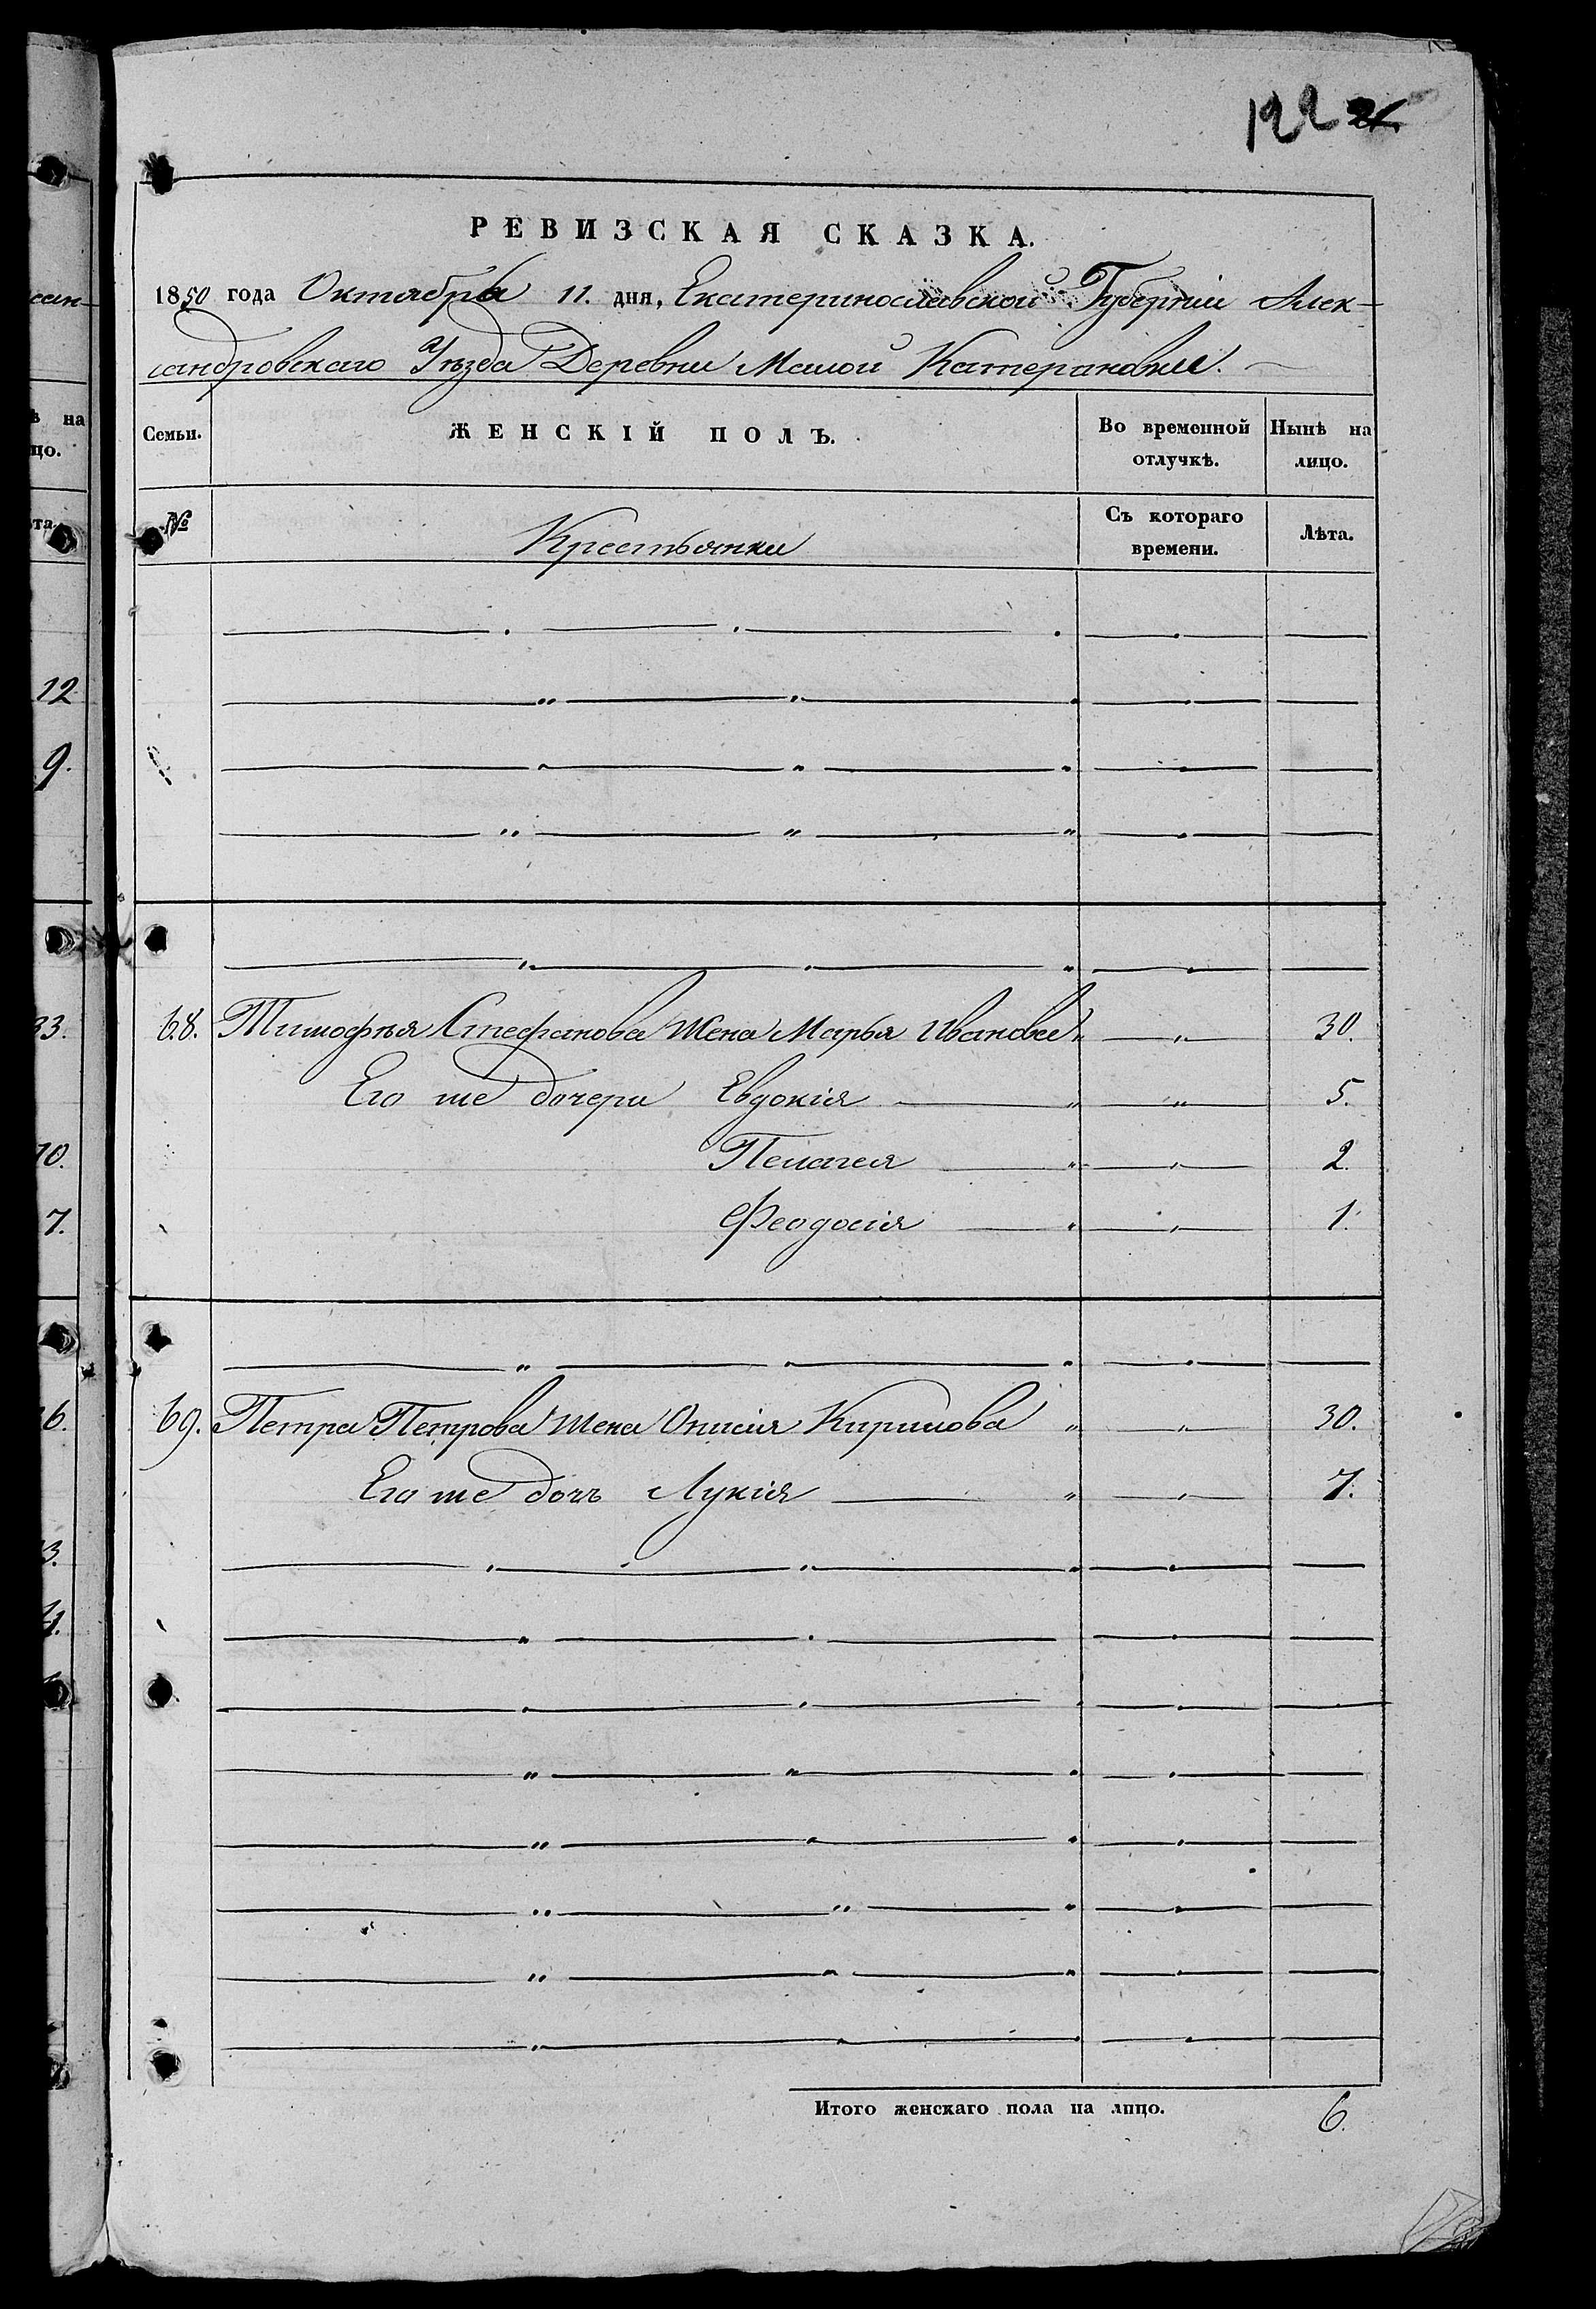 122
РЕВИЗСКАЯ СКАЗКА.
1850 года Октября 11. дня, Екатеринославской Губерніи Алек-
сандровскаго Уѣзда Деревни Малой Катериновки.
Семьи. ЖЕНСКІЙ ПОЛЪ. Во временной отлучкѣ. Нынѣ на лицо.
№ Крестьянки Съ котораго времени. Лѣта.
68. Тимофѣя Стефанова жена Марья Иванова 30.
Его же дочери Евдокія 5.
Пелагея 2.
Феодосія 1.
69. Петра Петрова жена Онисія Кирилова 30.
Его же дочь Лукія 7.
Итого женскаго пола на лицо. 6.
сан-
ѣ на
цо.
та.
12
9.
33.
10.
7.
6.
3.